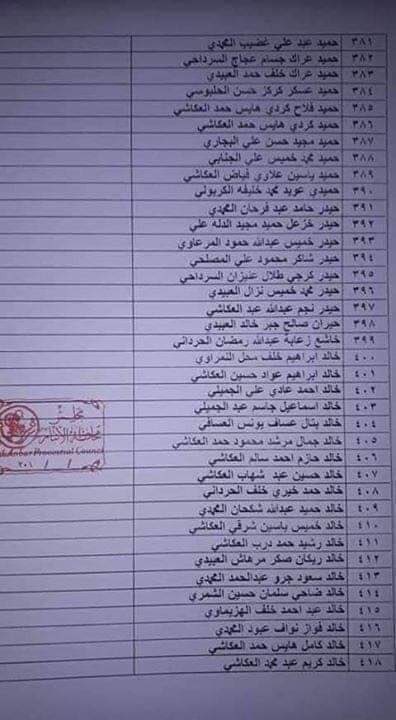 ٣٨١ حميد عبد علي غضيب المحمدي
٣٨٢ حميد عراك جسام عجاج السرداحي
٣٨٣ حميد عراك خلف حمد العبيدي
٣٨٤ حميد عسكر كركز حسن الحلبوسي
٣٨٥ حميد فلاح كردي هايس حمد العكاشي
٣٨٦ حميد كردي هايس حمد العكاشي
٣٨٧ حميد مجيد حسن علي البجاري
٣٨٨ حميد محمد خميس علي الجنابي
٣٨٩ حميد ياسين علاوي فياض العكاشي
٣٩٠ حميدي عويد محمد خليفه الكربولي
٣٩١ حيدر حامد عبد فرحان المحمدي
٣٩٢ حيدر خزعل حميد مجيد الدله علي
٣٩٣ حيدر خميس عبدالله حمود المرعاوي
٣٩٤ حيدر شاكر محمود علي المصلحي
٣٩٥ حيدر كرجي طلال عنيزان السرداحي
٣٩٦ حيدر محمد خميس نزال العبيدي
٣٩٧ حيدر نجم عبدالله عبد العكاشي
٣٩٨ حيران صالح جبر خالد العبيدي
٣٩٩ خاشع زعابة عبدالله رمضان الحرداني
٤٠٠ خالد ابراهيم خلف محل النمراوي
٤٠١ خالد ابراهيم عواد حسين العكاشي
٤٠٢ خالد احمد عادي علي الجميلي
٤٠٣ خالد اسماعيل جاسم عبد الجميلي
٤٠٤ خالد بتال عساف يونس العسافي
٤٠٥ خالد جمال مرشد محمود حمد العكاشي
٤٠٦ خالد حازم احمد سالم العكاشي
٤٠٧ خالد حسين عبد شهاب العكاشي
٤٠٨ خالد حمد خيري خلف الحرداني
٤٠٩ خالد حميد عبدالله شكحان المحمدي
٤١٠ خالد خميس ياسين شرقي العكاشي
٤١١ خالد رشيد حمد درب العكاشي
٤١٢ خالد ريكان صكر مرهاش العبيدي
٤١٣ خالد سعود جرو عبدالحمد المحمدي
٤١٤ خالد ضاحي سلمان حسين الشمري
٤١٥ خالد عبد احمد خلف الهزيماوي
٤١٦ خالد فواز نواف عبود المحمدي
٤١٧ خالد كامل هايس حمد العكاشي
٤١٨ خالد كريم عبد محمد العكاشي
مجلس
محافظة الأنبار
Anbar Provincial Council
/ / ٢٠١